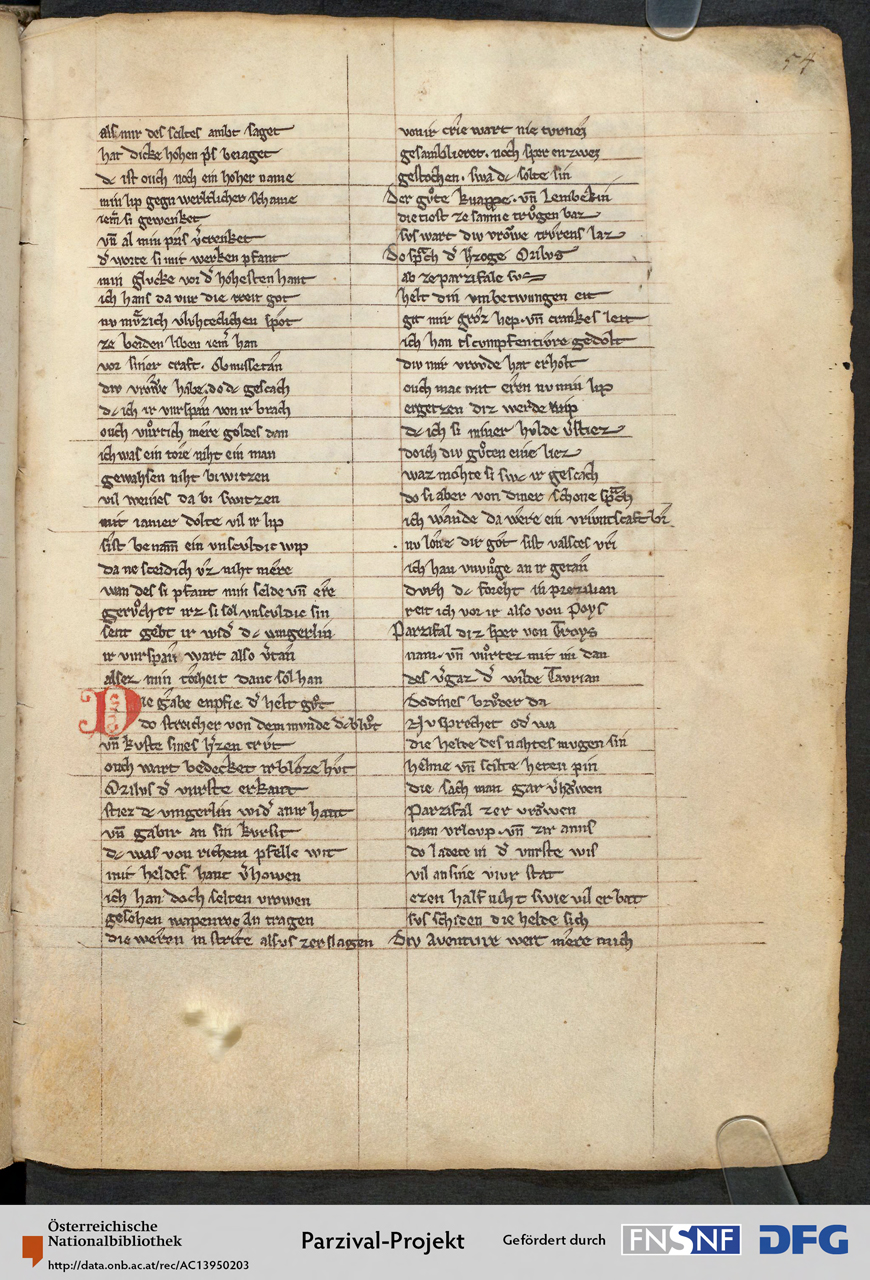 54
als mir des sciltes ambt saget
hat dicke hohen p̄s beiaget
dc ist ouch noch ein hoher name
min lip gegn werltlicher schame
iem̄ si gewenket
vn̄ al min p̄is v̄crenket
d᾽ worte si mit werken pfant
min glucke vor d᾽ hohesten hant
ich hans da vur die treit got
nv mvͦzich vluhteclichen spot
ze beiden liben iem̄ han
vor siner craft. ob missetan
div vrowe habe. do dc gescach
dc ich ir vurspan von ir brach
ouch vuͦrtich mere goldes dan
ich was ein tore niht ein man
gewahsen niht bi witzen
vil weines da bi switzen
mit iamer dolte vil ir lip
sist benam̄ ein vnsculdic wip
da ne sceidich vz niht mere
wan des si pfant min selde vn̄ ere
geruͦchet irz si sol vnsculdic sin
sent gebt ir wid᾽ dc vingerlin
ir vurspan wart also v̄tan
als ez min torheit danc sol han
Die gabe enpfie d᾽ helt guͦt
do streicher von dem munde dc bluͦt
vn̄ kuste sines h᾽zen trut
ouch wart bedecket ir bloze hut
Orilus d᾽ vurste erkant
stiez dc vingerlin wid᾽ an ir hant
vn̄ gabir an sin kursit
dc was von richem pfelle wit
mit heldes hant v᾽howen
ich han doch selten vrowen
gesehen wapenroc an tragen
die wern̄ in strite alsus zerslagen
von ir crie wart nie turnei
gesamblieret. noch sper enzwei
gestochen. swa dc solte sin
Der guͦte knappe. vn̄ Lembekin
die tiost ze samne truͦgen baz
sus wart div vroͮwe trurens laz
Do sp̄ch d᾽ h᾽zoge Orilus
ab ze parzifale sus
helt din vmbetwungen eit
git mir groz liep. vn̄ crankes leit
ich han tscumpfenture gedolt
div mir vroude hat erholt
ouch mac mit eren nv min lip
ergetzen diz werde wip
dc ich si miner hulde v᾽stiez
do ich div guͦten eine liez
waz mohte si swc ir gescach
do si aber von diner schone sp̄ch
ich wande da were ein vriuntscaft bi
nv lone dir got sist valsces vri
ich han vnvuͦge an ir getan
durh dc foreht in prezilian
reit ich vor ir also von Poys
Parzifal diz sper von Troys
nam. vn̄ vuͦrtez mit im dan
des v᾽gaz d᾽ wilde Taurian
Dodines bruͦder da
Nv sprechet od᾽ wa
die helde des nahtes mugen sin
helme vn̄ scilte heten pin
die sach man gar v᾽howen
Parzifal zer vrowen
nam vrloup. vn̄ zir amis
do ladete in d᾽ vurste wis
vil an sine viur stat
ezen half niht swie vil er bat
sus schiden die helde sich
Div Aventure wert mere mich
Österreichische
Nationalbibliothek
http://data.onb.ac.at/rec/AC13950203
Parzival-Projekt
Gefördert durch
FNSNF
DFG